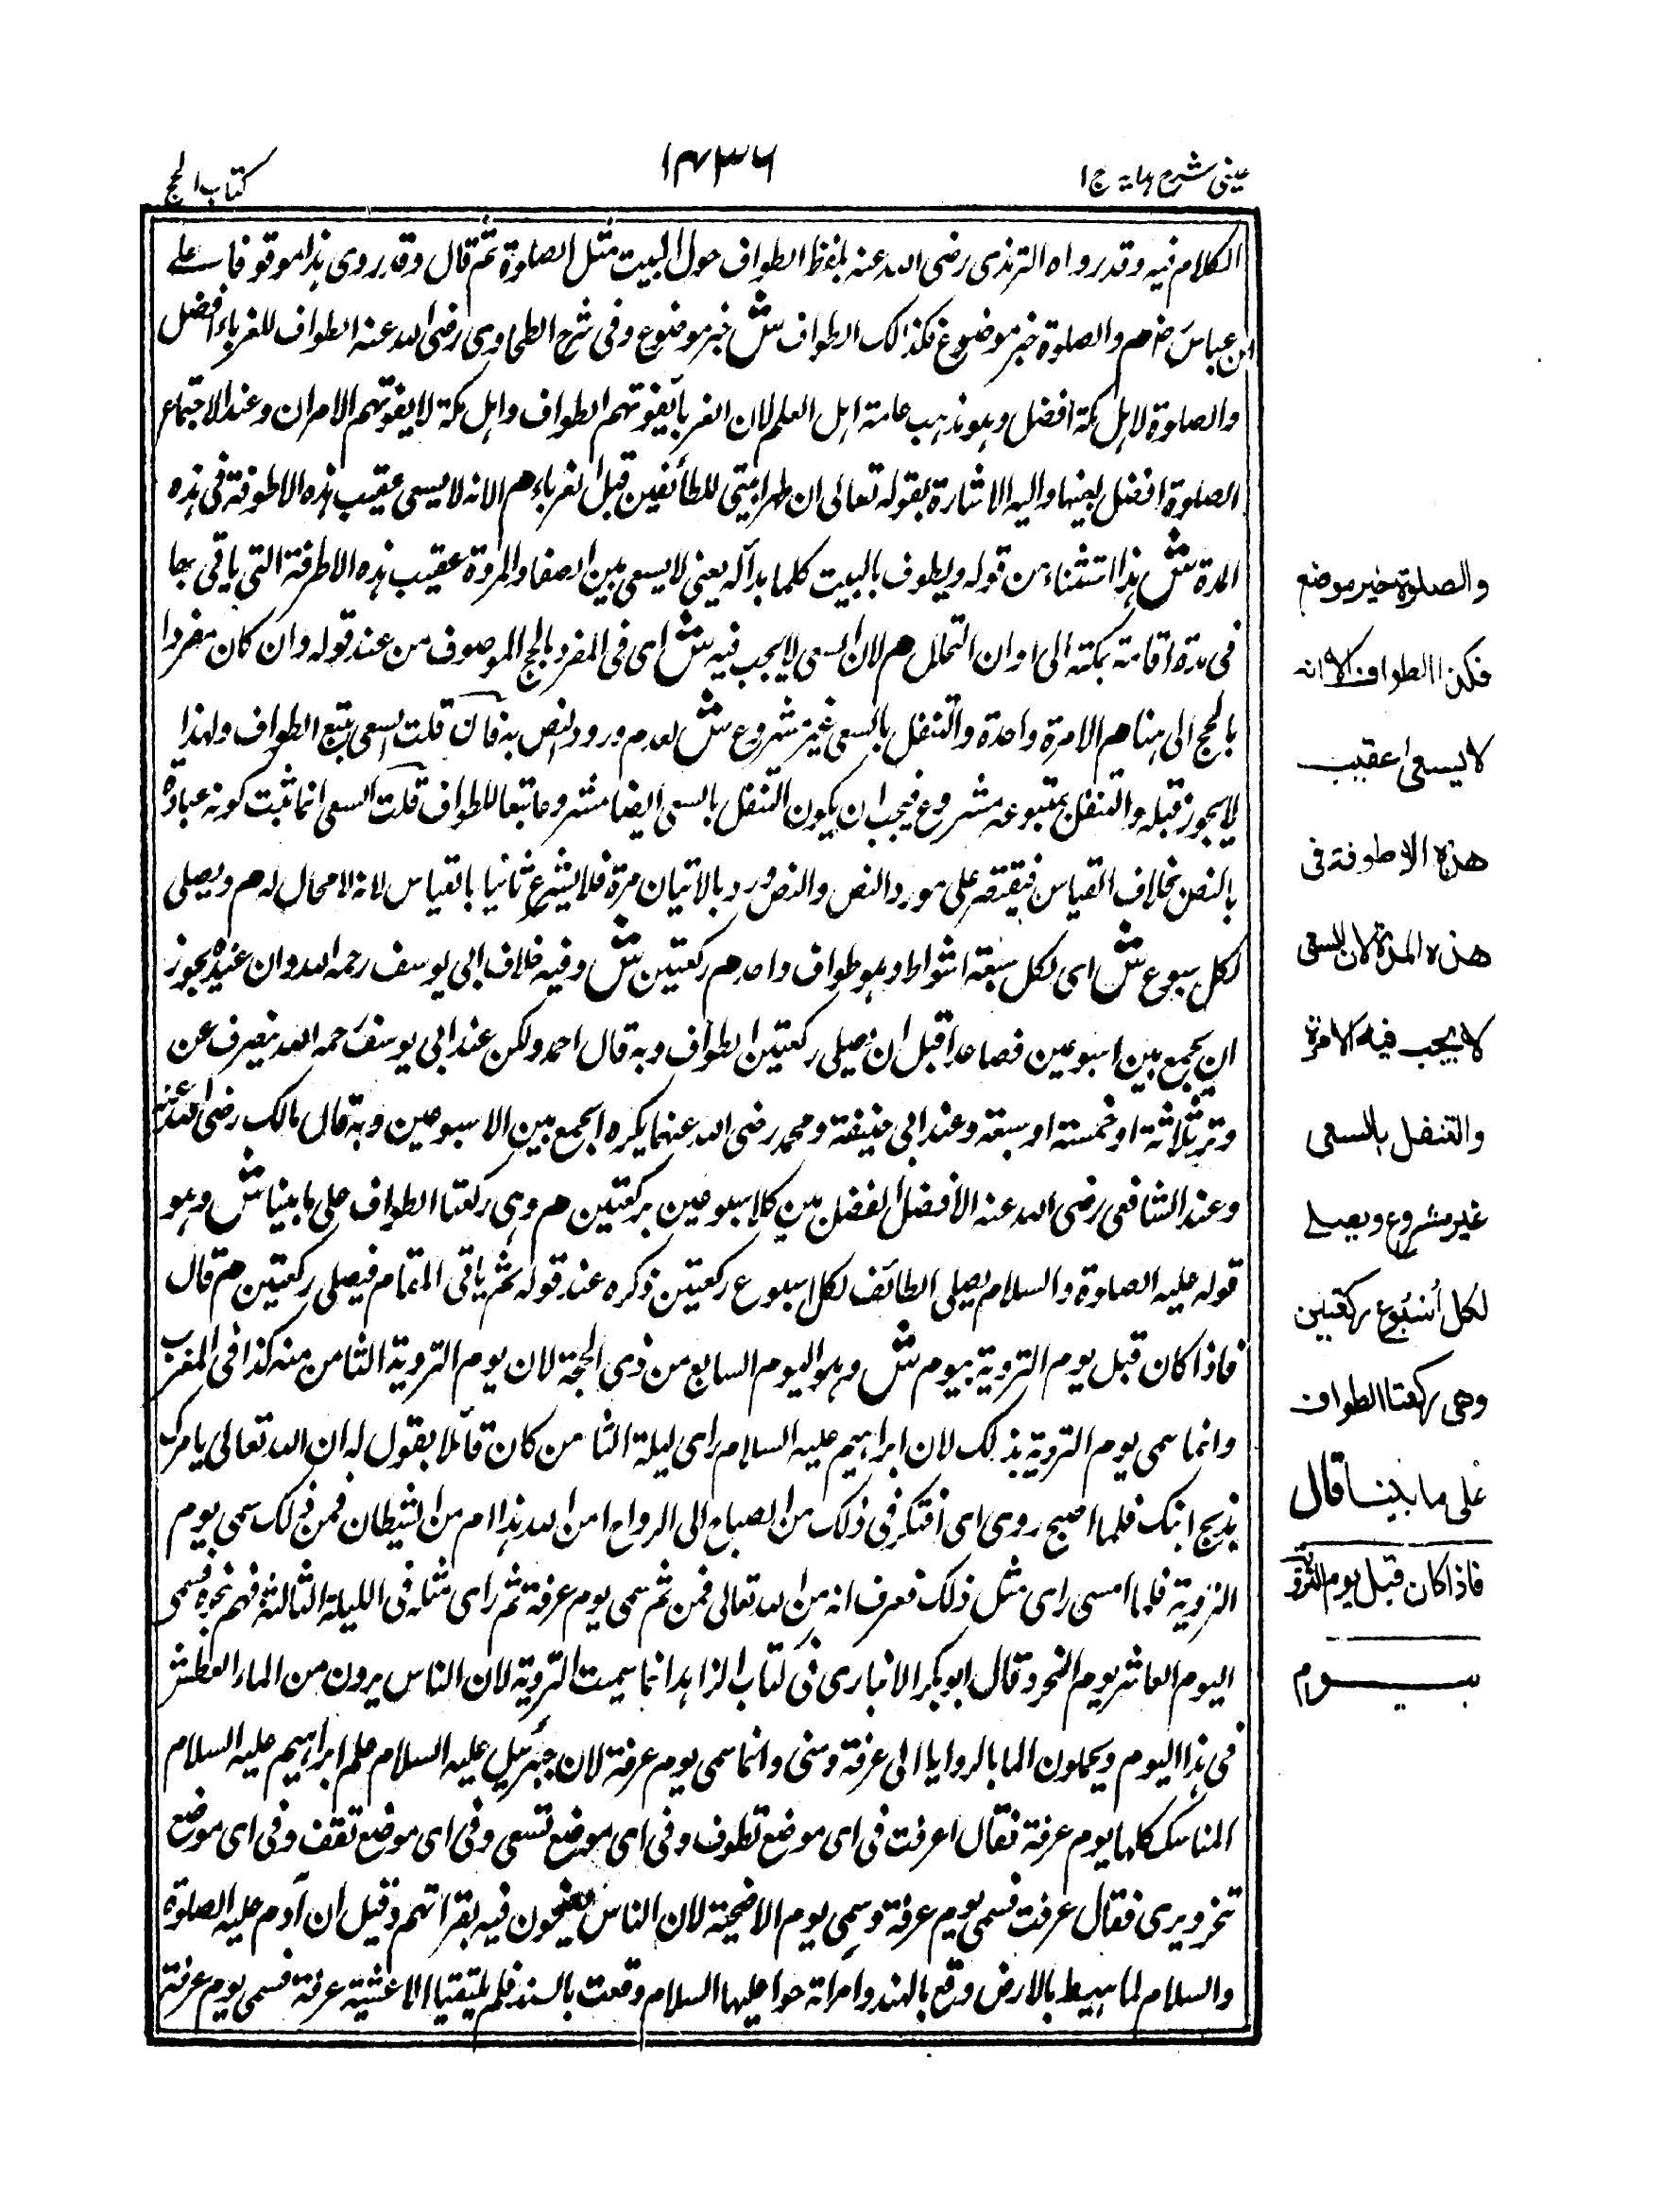 عینی شرح هدایه ج ۱
۱۴۳۶
کتاب الحج
الکلام فیه وقد رواه الترمذی رضی الله عنه بلفظ الطواف حول البیت مثل الصلوة ثم قال وقد روی هذا موقوفا علے
ابن عباس رضـ هم والصلوة خیر موضوع فکذالک الطواف ش خیر موضوع وفی شرح الطحاوی رضی الله عنه الطواف للغرباء افضل
والصلوة لاهل مکة افضل وهو مذهب عامة اهل العلم لان الغرباء یفوتهم الطواف واهل مکة لا یفوتهم الامران وعند الاجتماع
الصلوة افضل بعینها والیه الاشارة بقوله تعالی ان طهرا بیتی للطائفین قبل الغرباء هم الا انه لا یسعی عقیب هذه الاطوفة فی هذه
المدة ش هذا استثناء من قوله ویطوف بالبیت کلما بدأ له یعنی لا یسعی بین الصفا والمروة عقیب هذه الاطوفة التی یاتی بها
فی مدة اقامته بمکة الی اوان التحلل هم لان السعی لا یجب فیه ش ای فی المفرد بالحج الموصوف من عند قوله وان کان مفردا
بالحج الی هنا هم الا مرة واحدة والتنفل بالسعی غیر مشروع ش لعدم ورود النص به فان قلت السعی یتبع الطواف ولهذا
لا یجوز قبله والتنفل بمتبوعه مشروع فیجب ان یکون التنفل بالسعی ایضا مشروعا تبعا للطواف قلت السعی انما ثبت کونه عبادة
بالنص بخلاف القیاس فیقتصر علی مورد النص والنص ورد بالاتیان مرة فلا یشرع ثانیا بالقیاس لانه لا محال له هم ویصلی
لکل سبوع ش ای لکل سبعة اشواط وهو طواف واحد هم رکعتین ش وفیه خلاف ابی یوسف رحمه الله وان عنده یجوز
ان یجمع بین اسبوعین فصاعدا قبل ان یصلی رکعتین الطواف وبه قال احمد ولکن عند ابی یوسف رحمه الله ینصرف عن
وتر ثلاثة او خمسة او سبعة وعند ابی حنیفة ومحمد رضی الله عنهما یکره الجمع بین الاسبوعین وبه قال مالک رضی الله عنه
وعند الشافعی رضی الله عنه الافضل لفضل بین کلا سبوعین برکعتین هم وهی رکعتا الطواف علی ما بینا ش وهو
قوله علیه الصلوة والسلام یصلی الطائف لکل اسبوع رکعتین ذکره عند قوله ثم یاتی المقام فیصلی رکعتین هم قال
فاذا کان قبل یوم الترویة بیوم ش وهو الیوم السابع من ذی الحجة لان یوم الترویة الثامن منه کذا فی المغرب
وانما سمی یوم الترویة بذلک لان ابراهیم علیه السلام رای لیلة الثامن کان قائلا بقول له ان الله تعالی یامرک
بذبح ابنک فلما اصبح روی ای افتکر فی ذلک من الصباح الی الرواح امن الله هذا ام من الشیطان فمن ذلک سمی یوم
الترویة فلما امسی رای مثل ذلک فعرف انه من الله تعالی فمن ثم سمی یوم عرفة ثم رای مثله فی اللیلة الثالثة فهم بنحره فسمی
الیوم العاشر یوم النحر وقال ابو بکر الانباری فی کتاب الزاهد انما سمیت الترویة لان الناس یرون من الماء العطش
فی هذا الیوم ویحملون الما بالروایا الی عرفة ومنی وانما سمی یوم عرفة لان جبرئیل علیه السلام علم ابراهیم علیه السلام
المناسک کلها یوم عرفة فقال اعرفت فی ای موضع تطوف وفی ای موضع تسعی وفی ای موضع تقف وفی ای موضع
تنحر ویرمی فقال عرفت فسمی یوم عرفة وسمی یوم الاضحیة لان الناس یضحون فیه بقراتهم وقیل ان آدم علیه الصلوة
والسلام لما هبیط بالارض وقع بالهند وامراته حوا علیها السلام وقعت بالسند فلم یلتقیا الا عشیة عرفة فسمی یوم عرفة
والصلوة خیر موضع
فکذا الطواف الا انه
لا یسعی عقیب
هذه الاطوفة فی
هذه المدة لان السعی
لا یجب فیه الا مرة
والتنفل بالسعی
غیر مشروع ویصلے
لکل أسبوع رکعتین
وهی رکعتا الطواف
علی ما بینا قال
فاذا کان قبل یوم الترویة
بیوم